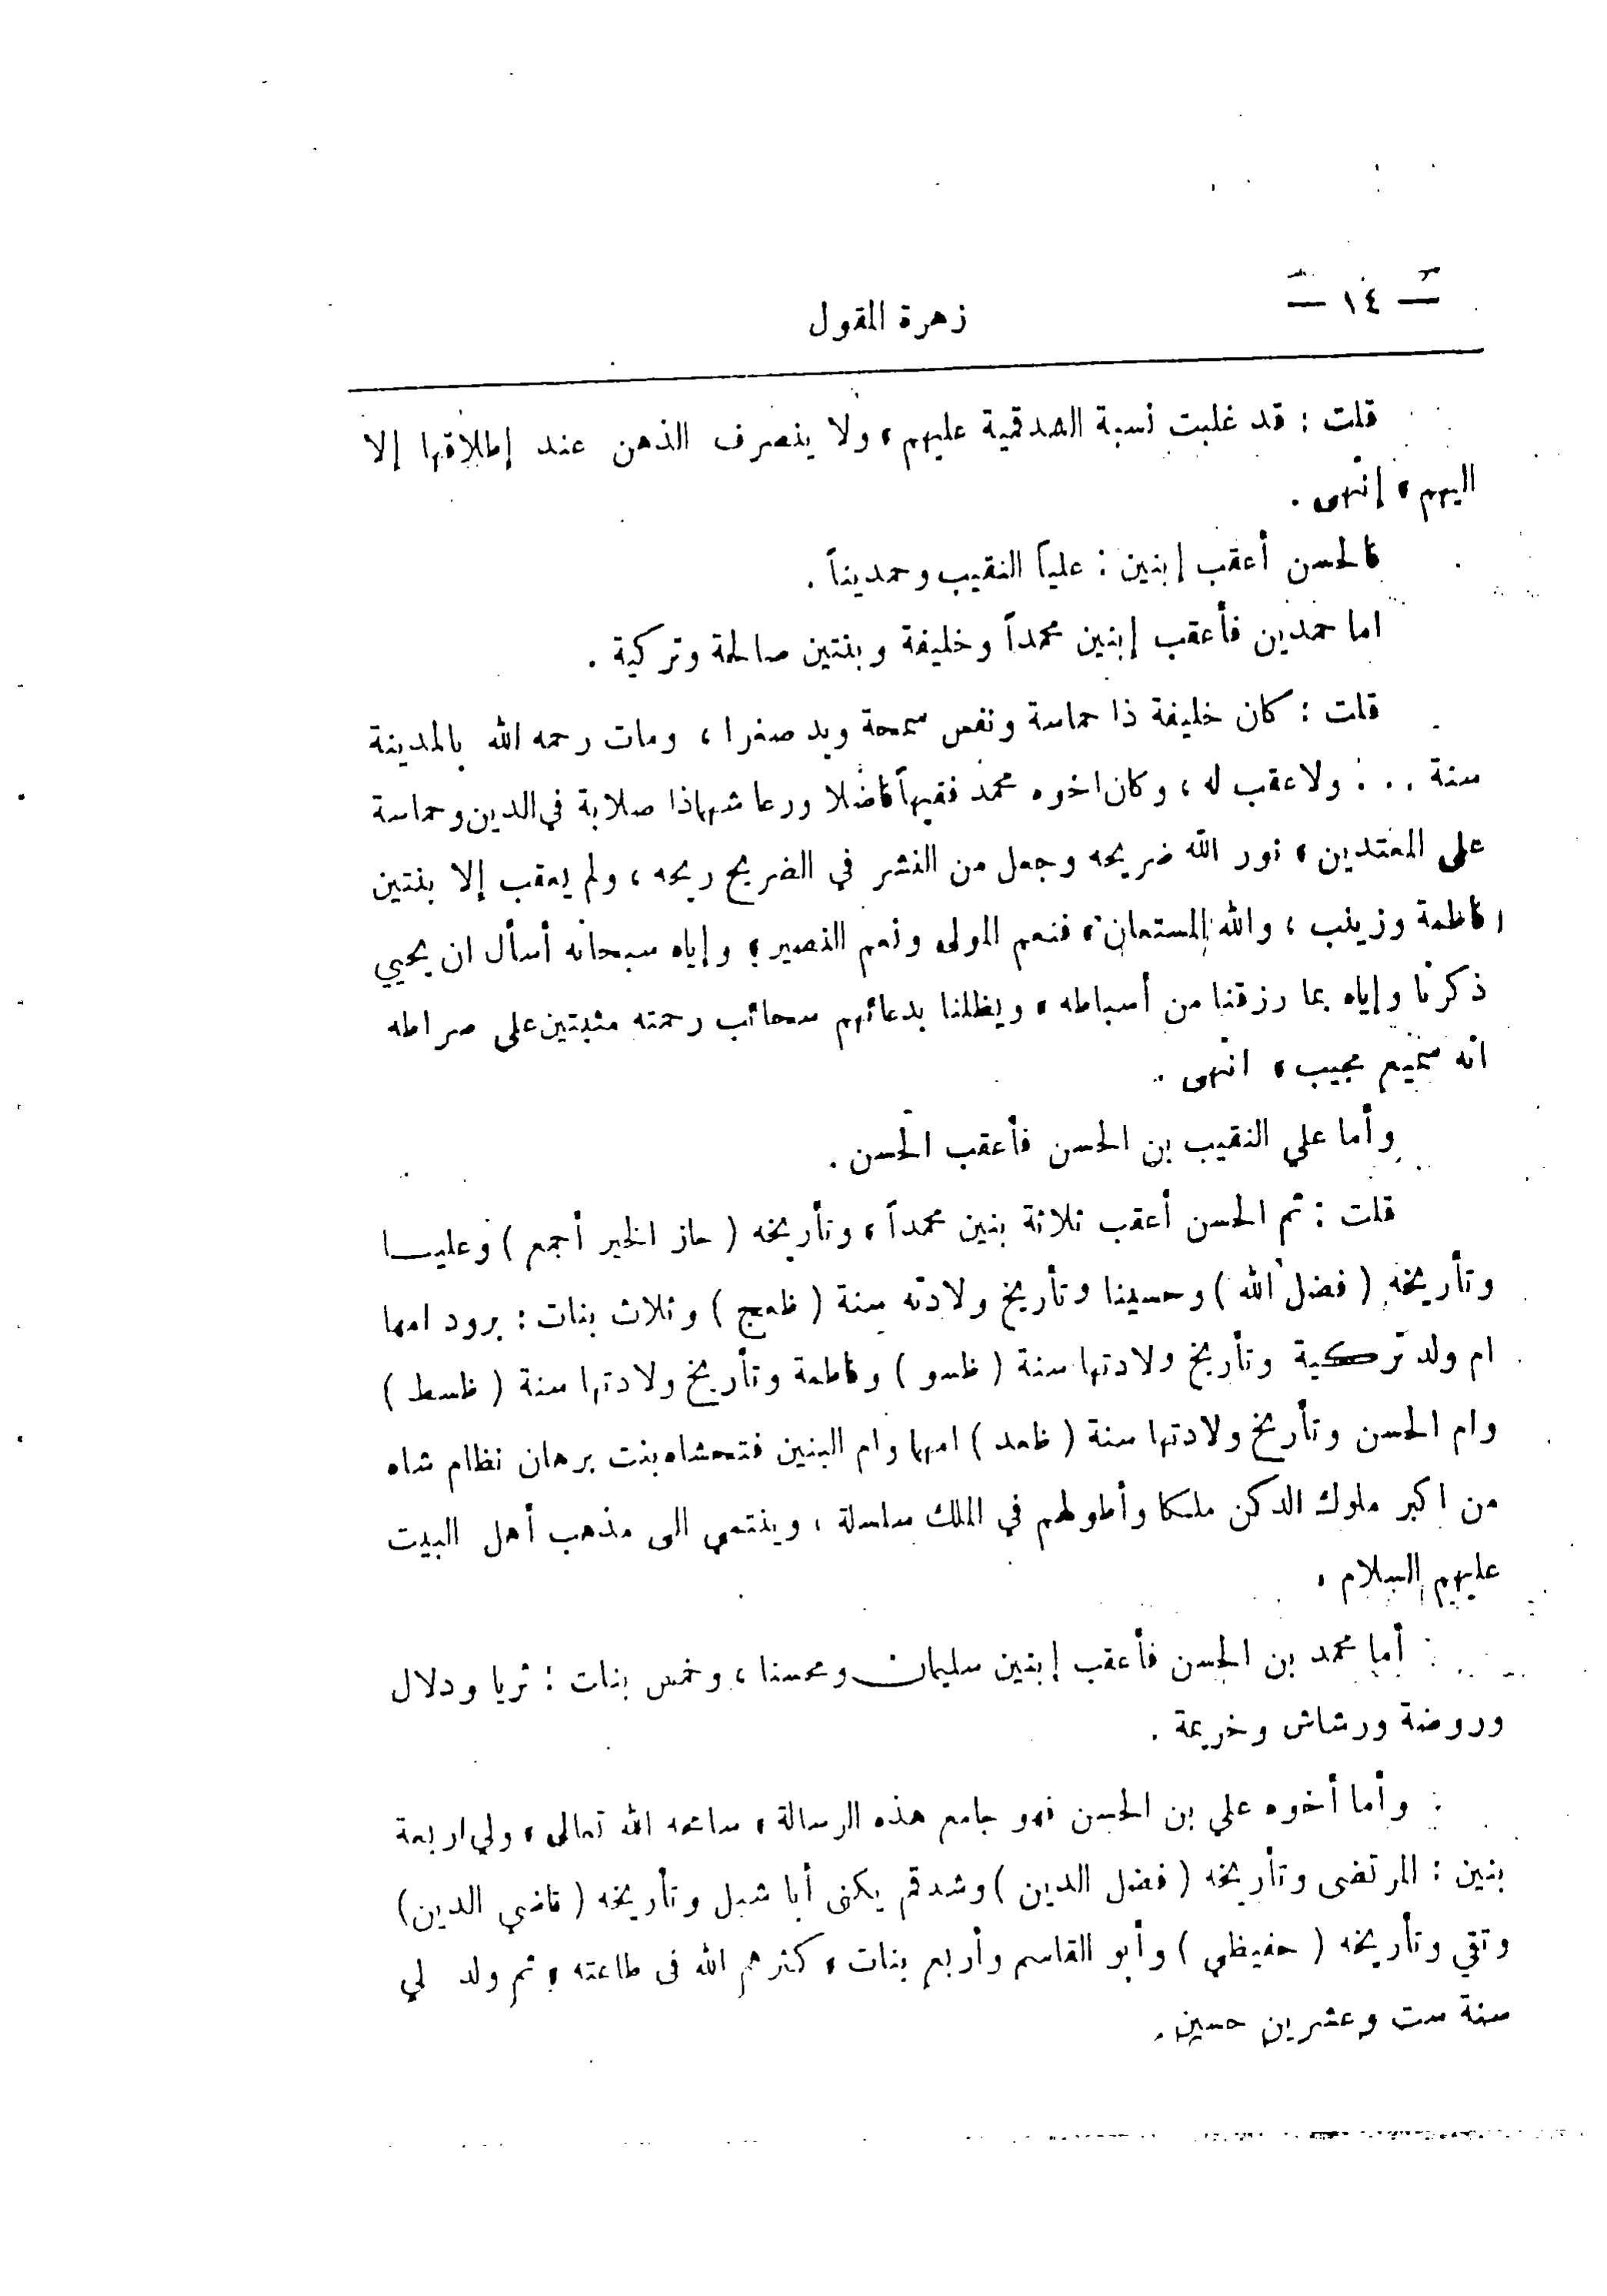 — ١٤ —
زهرة المقول
قلت : قد غلبت نسبة الشدقمية عليهم ، ولا ينصرف الذهن عند إطلاقها إلا
اليهم ، إنتهى .
فالحسن أعقب إبنين : علياً النقيب وحمديناً .
اما حمدين فأعقب إبنين محمداً وخليفة وبنتين صالحة وتركية .
قلت : كان خليفة ذا حماسة ونفس سمحة ويد صفرا ، ومات رحمه الله بالمدينة
سنة ... ولا عقب له ، وكان اخوه محمد فقيهاً فاضلا ورعا شهماذا صلابة في الدين وحماسة
على المعتدين ، نور الله ضريحه وجعل من النشر في الضريح ريحه ، ولم يعقب إلا بنتين
فاطمة وزينب ، والله المستعان ، فنعم المولى ونعم النصير ، وإياه سبحانه أسأل ان يحيي
ذكرنا وإياه بما رزقنا من أسباطه ، ويظلنا بدعائهم سحائب رحمته مثبتين على صراطه
انه سميع مجيب ، انتهى .
وأما علي النقيب بن الحسن فأعقب الحسن .
قلت : ثم الحسن أعقب ثلاثة بنين محمداً ، وتأريخه ( حاز الخير أجمع ) وعليا
وتأريخه ( فضل الله ) وحسينا وتأريخ ولادته سنة ( ظعج ) وثلاث بنات : برود امها
ام ولد تركية وتأريخ ولادتها سنة ( ظسو ) وفاطمة وتأريخ ولادتها سنة ( ظسط )
وام الحسن وتأريخ ولادتها سنة ( ظعد ) امها وام البنين فتحشاه بنت برهان نظام شاه
من اكبر ملوك الدكن ملكا وأطولهم في الملك سلسلة ، وينتمي الى مذهب أهل البيت
عليهم السلام .
أما محمد بن الحسن فأعقب إبنين سليمان ومحسنا ، وخمس بنات : ثريا ودلال
وروضة ورشاش وخريمة .
وأما أخوه علي بن الحسن فهو جامع هذه الرسالة ، سامحه الله تعالى ، ولي اربعة
بنين : المرتضى وتأريخه ( فضل الدين ) وشدقم يكنى أبا شبل وتأريخه ( قاضي الدين )
وتقي وتأريخه ( حفيظي ) وأبو القاسم وأربع بنات ، كثرهم الله فى طاعته ، ثم ولد لي
سنة ست وعشرين حسين .